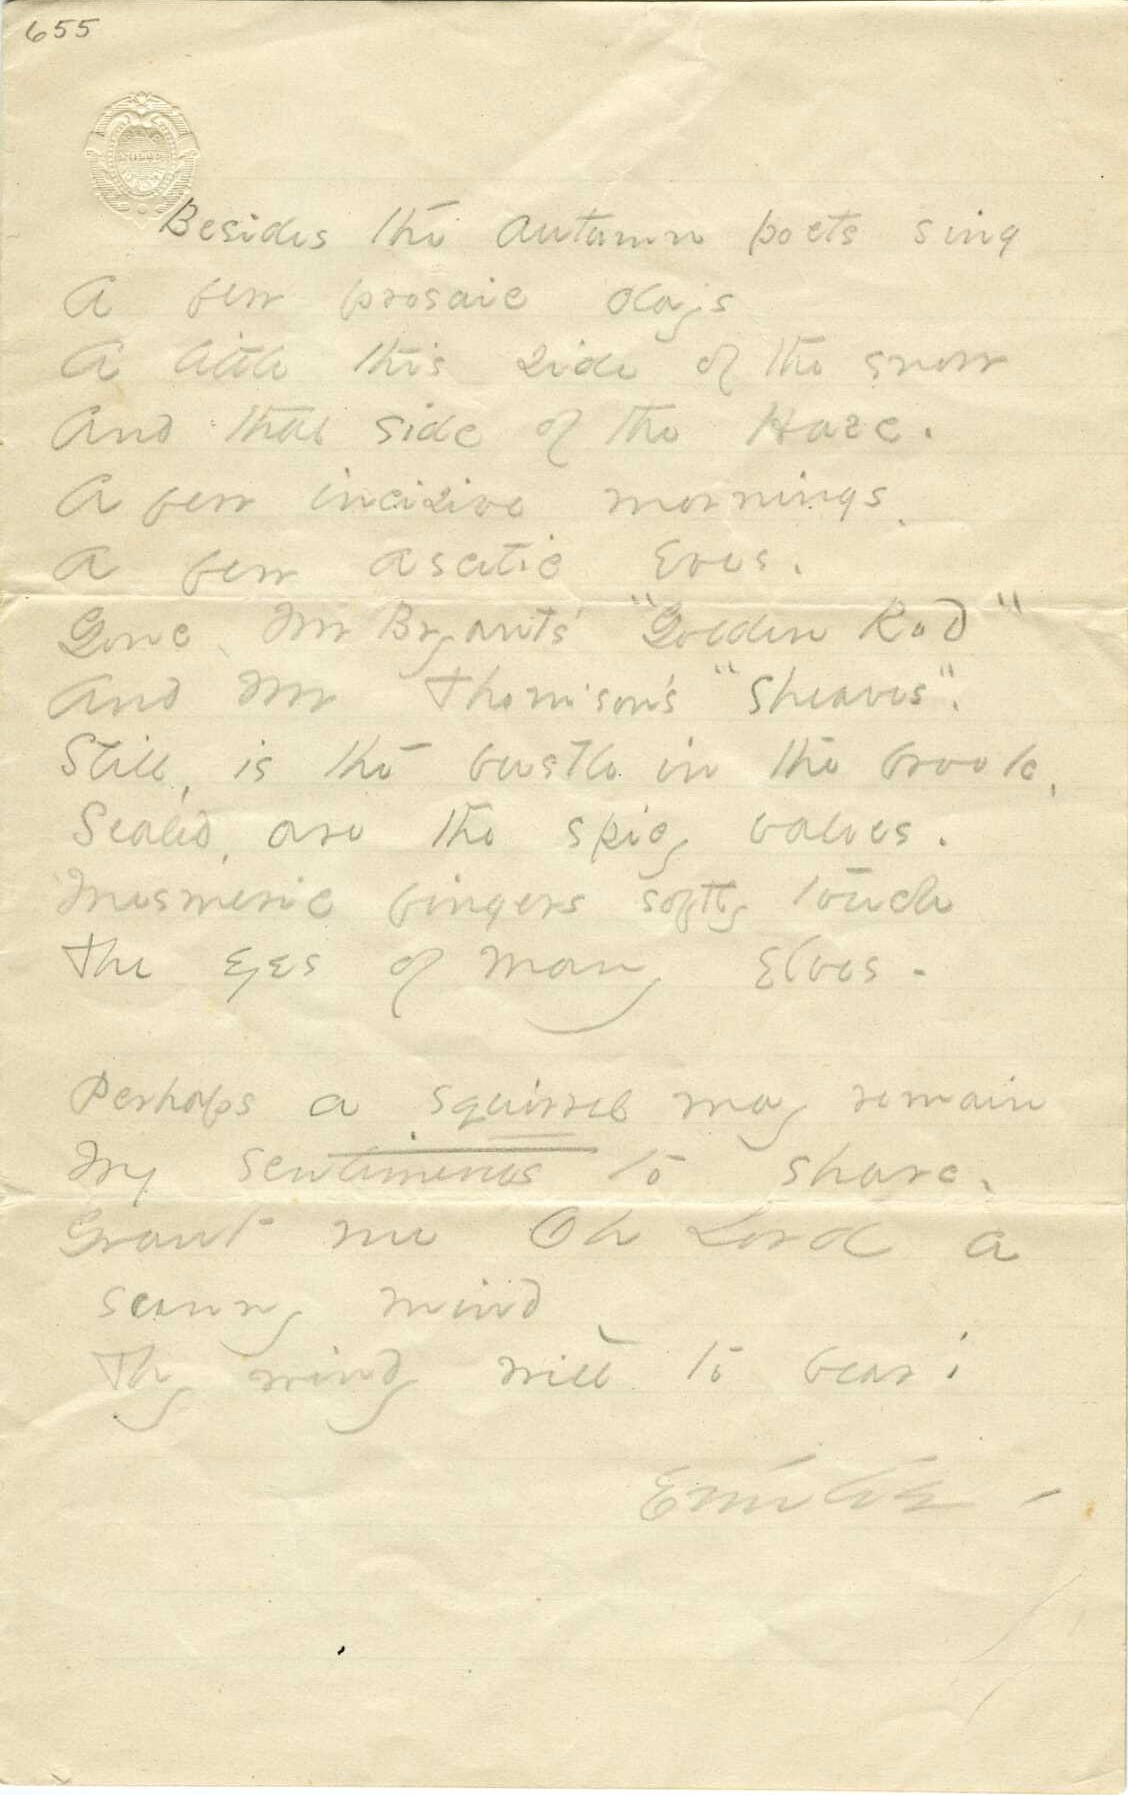 655
Besides the autumn poets sing
A few prosaic days
A little this side of the snow
And that side of the Haze.
A few incisive mornings.
A few ascetic Eves.
Gone, Mr Bryant's "Golden Rod"
And Mr Thomson's "Sheaves".
Still, is the bustle in the brook,
Sealed, are the spicy valves.
Mesmeric fingers softly touch
The Eyes of many Elves.
Perhaps a squirrel may remain
My sentiments to share.
Grant me Oh Lord a
sunny mind
Thy windy will to bear!